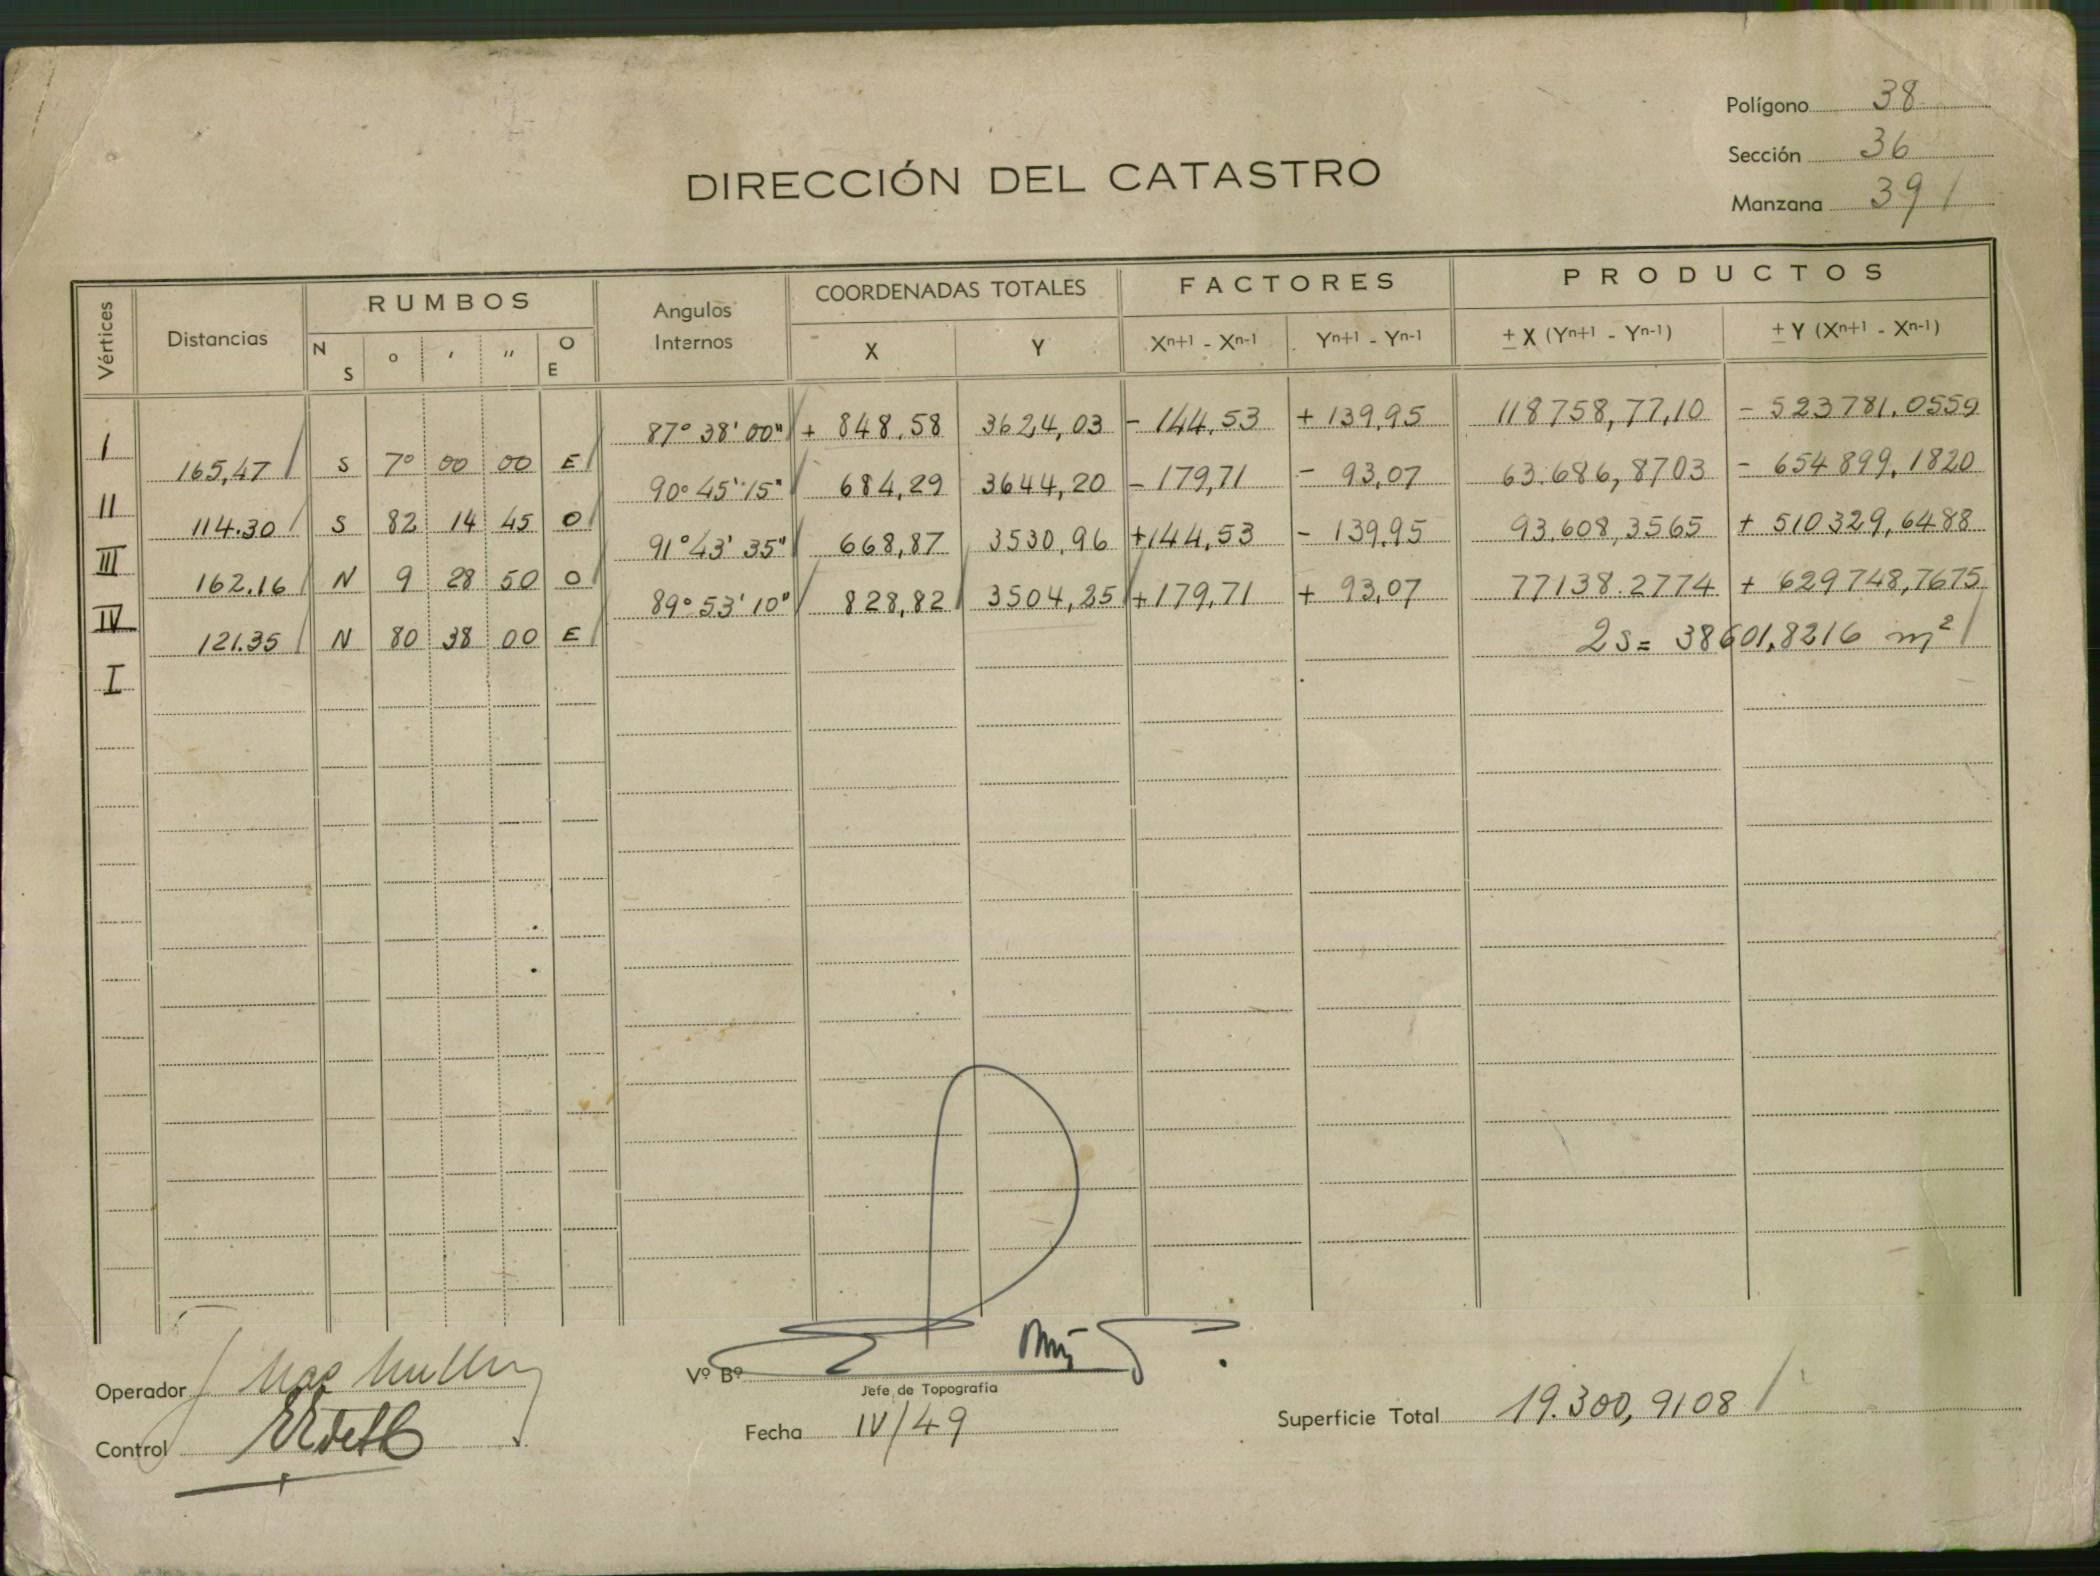 Polígono 38
Sección 36
Manzana 39 /
DIRECCIÓN DEL CATASTRO
Vértices Distancias RUMBOS Angulos Internos COORDENADAS TOTALES FACTORES PRODUCTOS
N S ° ' " O E X Y Xⁿ⁺¹ - Xⁿ⁻¹ Yⁿ⁺¹ - Yⁿ⁻¹ ± X (Yⁿ⁺¹ - Yⁿ⁻¹) ± Y (Xⁿ⁺¹ - Xⁿ⁻¹)
I 87° 38' 00" + 848,58 3624,03 - 144,53 + 139,95 118758,77,10 - 523781.0559
165,47 S 7° 00 00 E
II 90° 45' 15" 684,29 3644,20 - 179,71 - 93,07 63.686,8703 - 654899,1820
114.30 S 82 14 45 O
III 91° 43' 35" 668,87 3530,96 +144,53 - 139,95 93.608,3565 + 510329,6488
162.16 N 9 28 50 O
IV 89° 53' 10" 828,82 3504,25 +179,71 + 93,07 77138.2774 + 629748,7675
121.35 N 80 38 00 E
2S = 38601,8216 m² /
I
Operador
Control
Vº Bº
Jefe de Topografía
Fecha IV/49
Superficie Total 19.300,9108 /